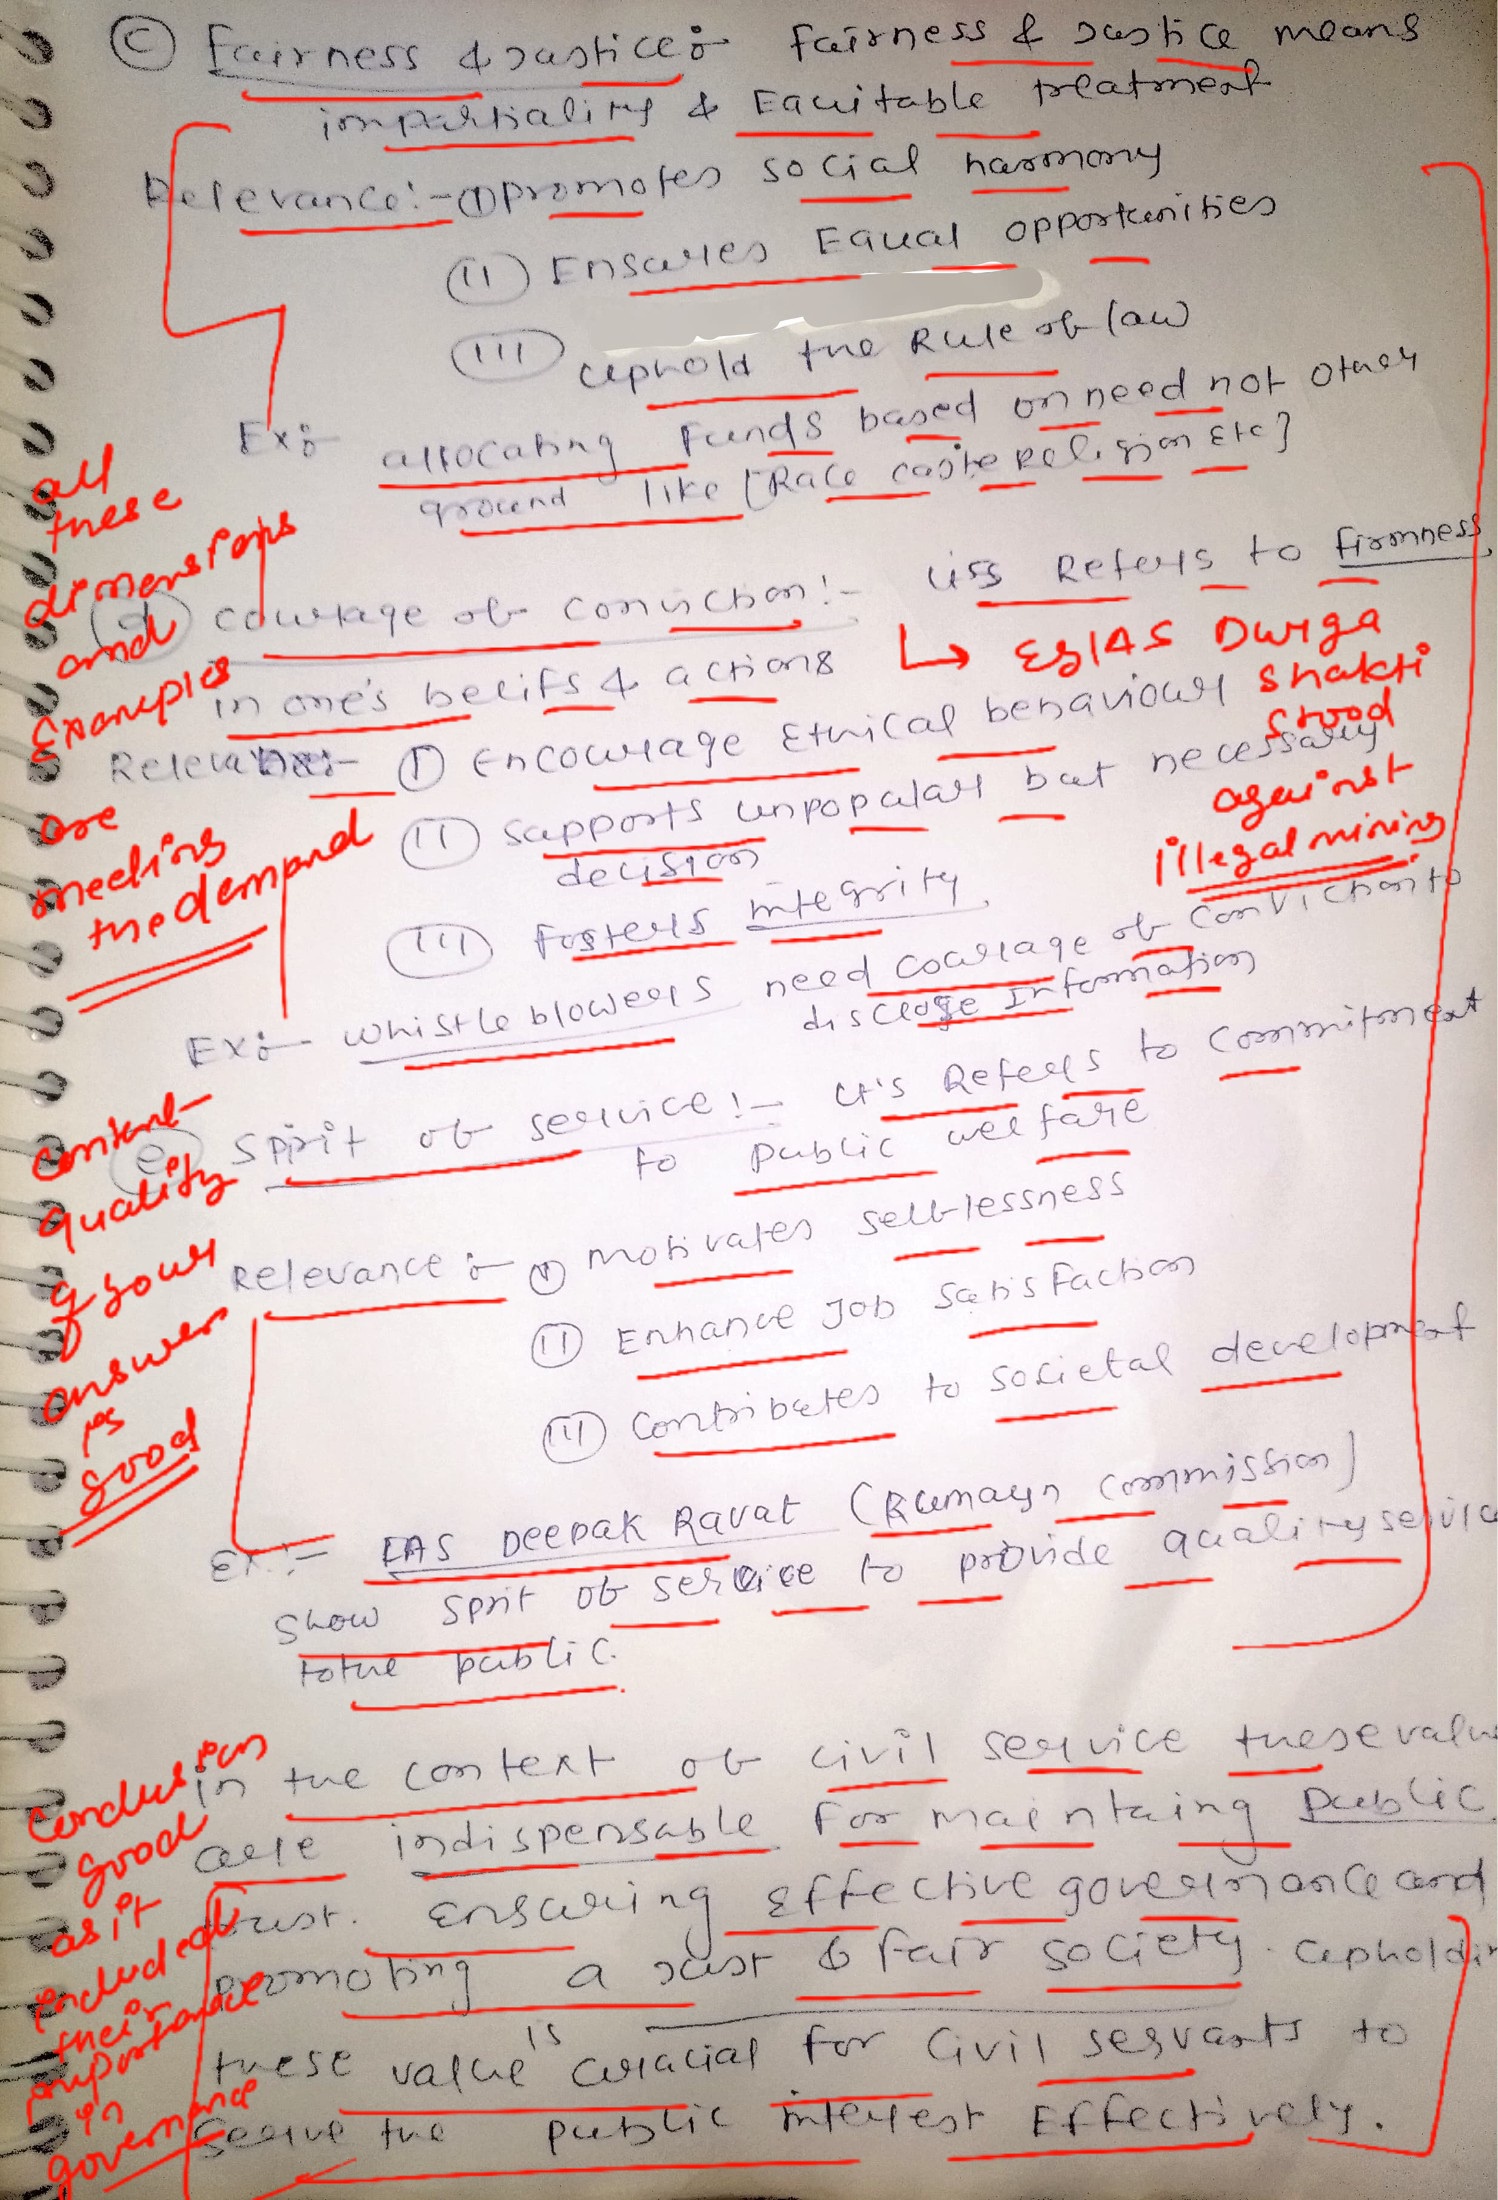 (C) Fairness & Justice :- Fairness & Justice means
impartiality & Equitable treatment
Relevance :- (i) promotes social harmony
(ii) Ensures Equal opportunities
(iii) uphold the Rule of law
Ex :- allocating Funds based on need not other
ground like [Race caste Religion Etc]
(d) courage of conviction :- its Refers to firmness
in one's belifs & actions
Relevance :- (i) Encourage Ethical behaviour
(ii) supports unpopular but necessary
decision
(iii) Fosters integrity
Ex :- whistle blowers need courage of conviction to
disclose Information
(e) spirit of service :- it's Refers to commitment
to public welfare
Relevance :- (i) motivates selflessness
(ii) Enhance Job satisfaction
(iii) contributes to societal development
Ex :- IAS Deepak Ravat (Kumayn commission)
show sprit of service to provide quality service
to the public.
in the context of civil service these value
are indispensable for maintaing public
trust. ensuring effective governance and
promoting a just & fair society. upholdin
these value is crucial for civil servants to
serve the public interest Effectively.
all
these
dimensions
and
Examples
are
meeting
the demand
↳ Eg IAS Durga
Shakti
stood
against
illegal mining
content
quality
of your
answer
is
good
conclusion
good
as it
included
their
importance
in
governance